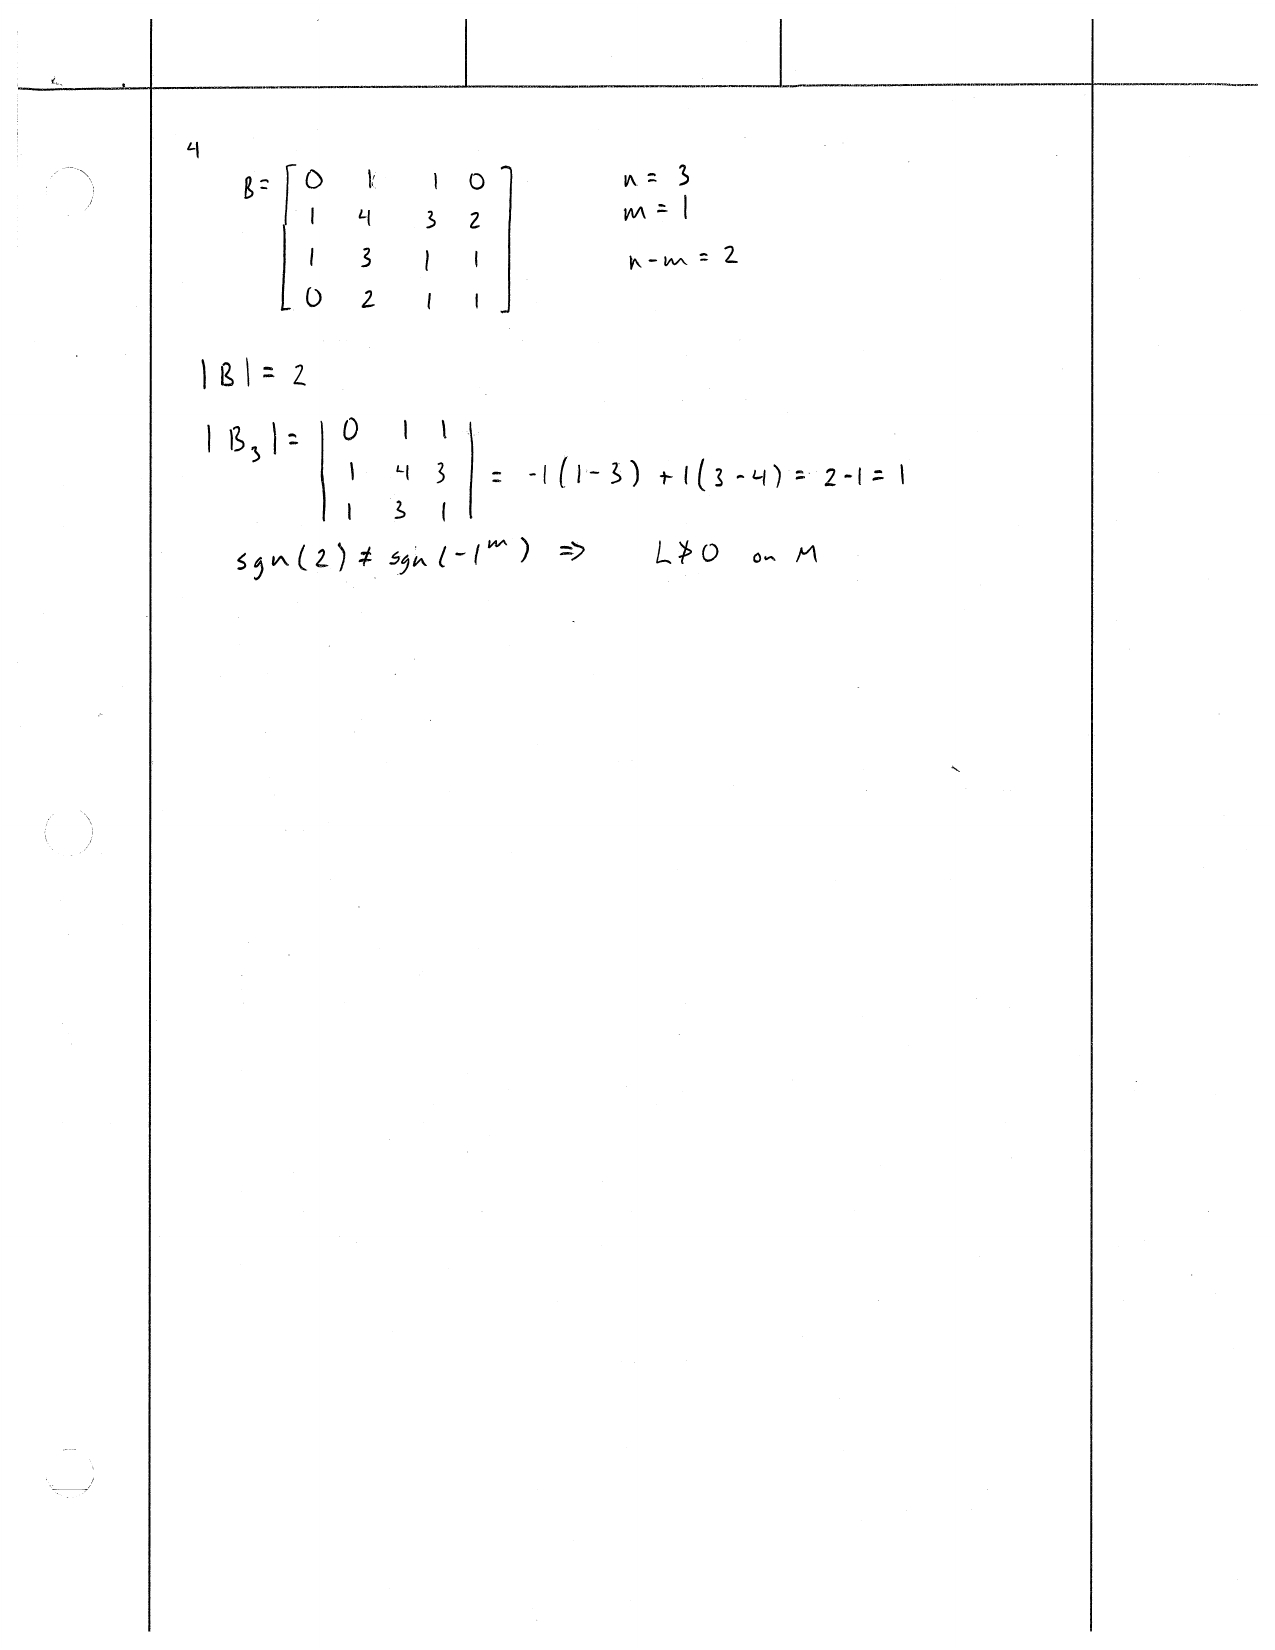 4
B = [ 0 1 1 0
1 4 3 2
1 3 1 1
0 2 1 1 ]
n = 3
m = 1
n - m = 2
|B| = 2
|B₃| = | 0 1 1
1 4 3
1 3 1 | = -1(1-3) + 1(3-4) = 2-1 = 1
sgn(2) ≠ sgn(-1ᵐ) ⇒ L ≯ 0 on M